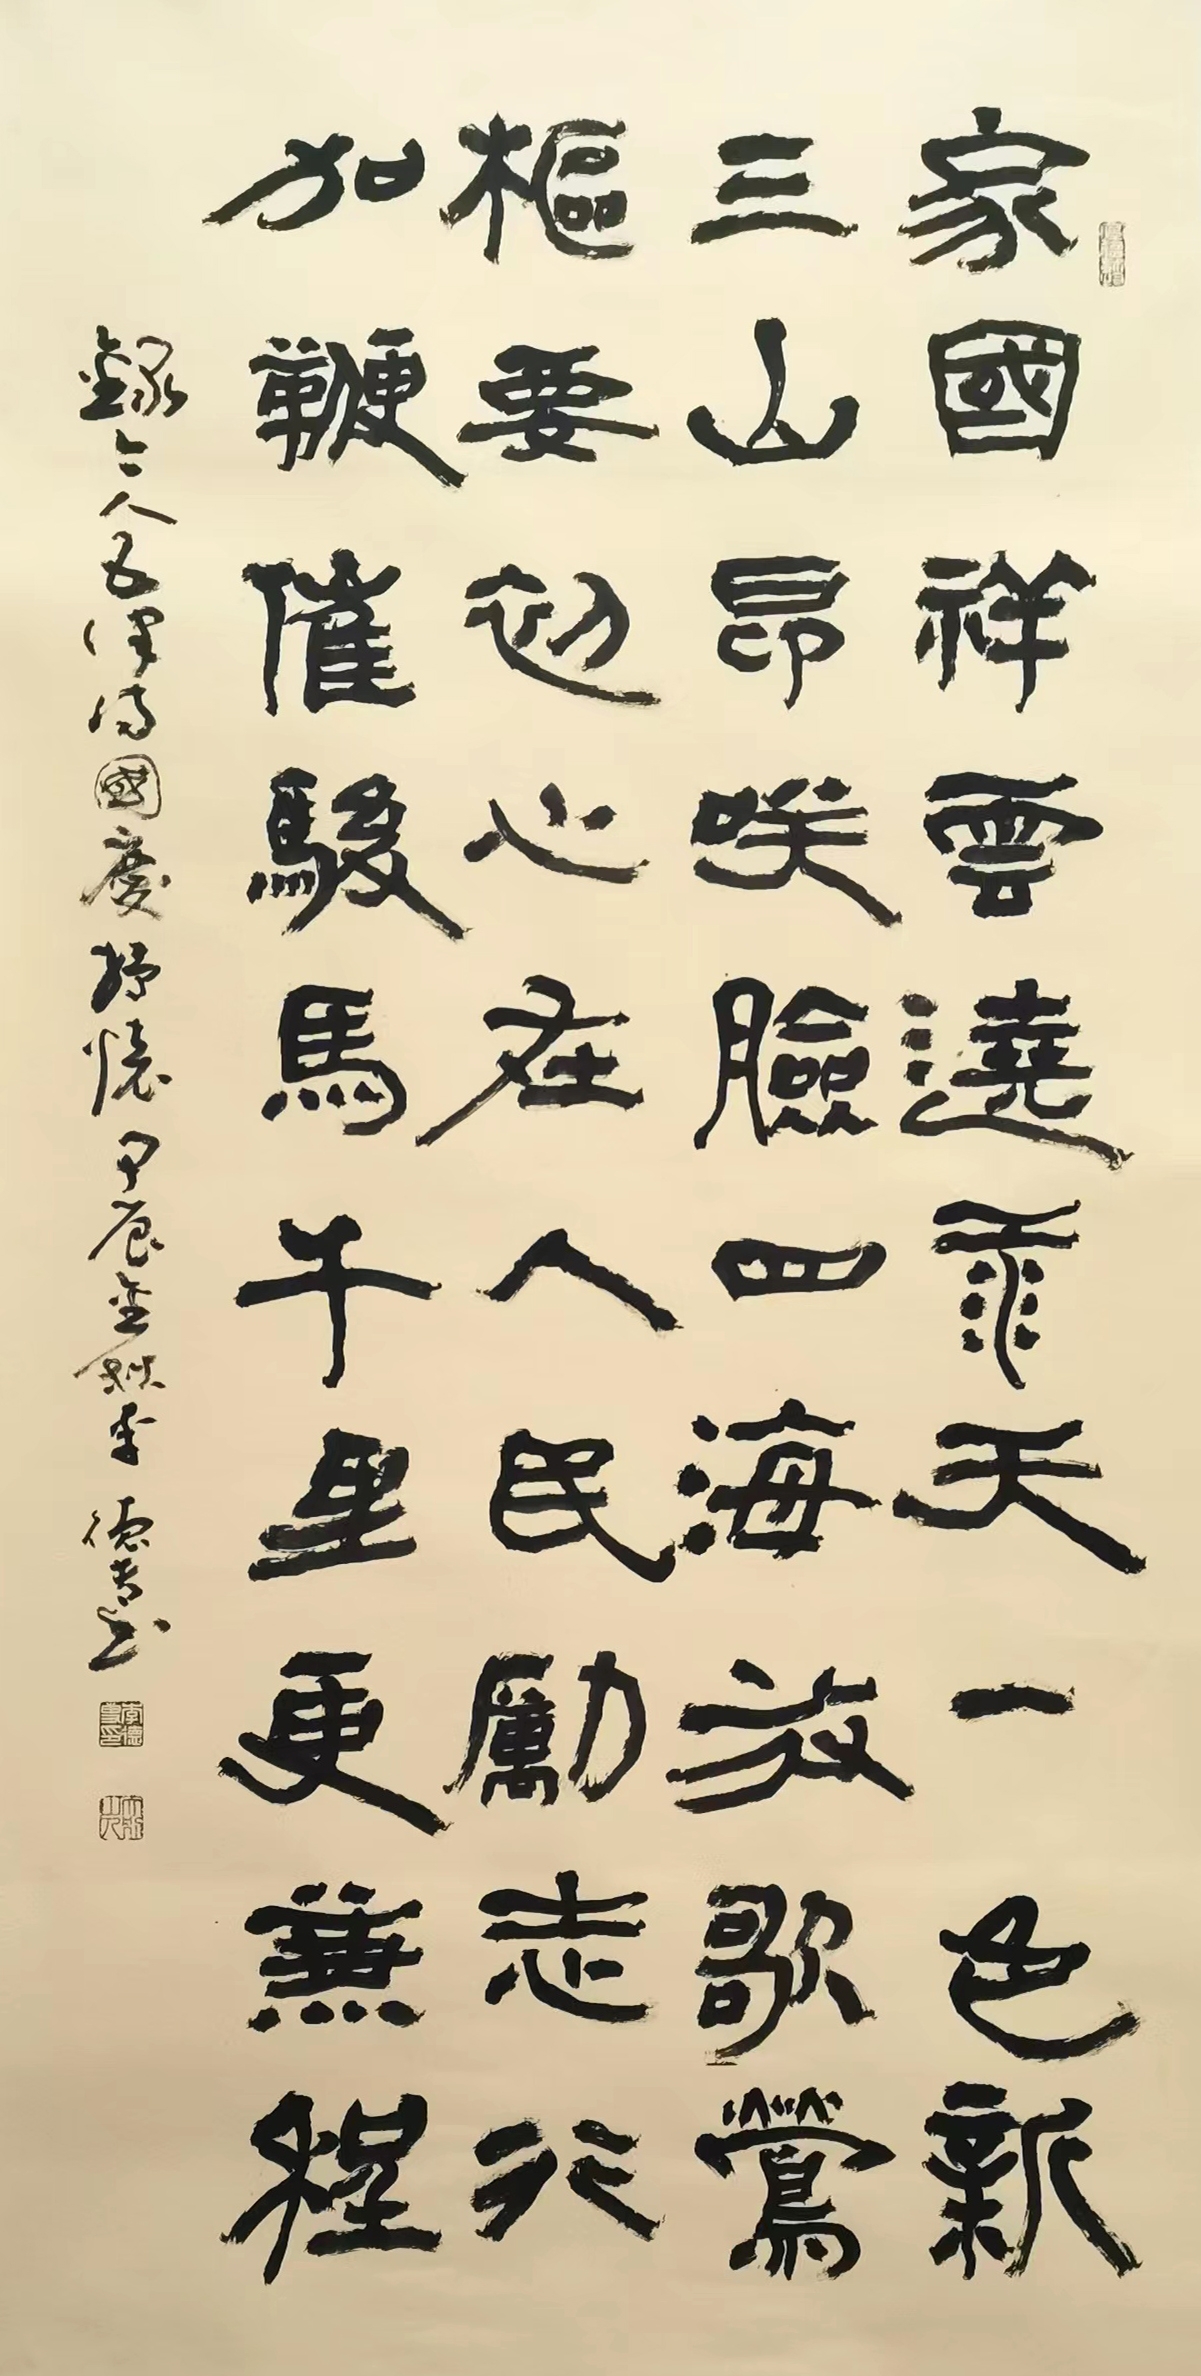 家國祥雲遶天一色新
三山昂咲臉四海放歌鶯
樞要初心在人民勵志行
加鞭催駿馬千里更兼程
錄今人五律詩國慶抒懷甲辰金秋李德